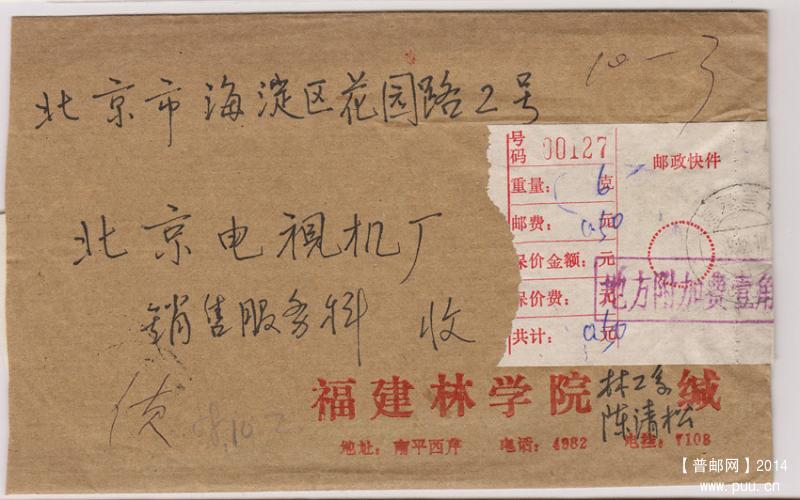 北京市海淀区花园路2号
10-3
北京电视机厂
销售服务科 收
号码 00127
邮政快件
重量: 6 克
邮费: 0.50 元
保价金额: 元
保价费: 元
共计: 0.50 元
地方附加费壹角
福建林学院 林工系 缄
陈清松
地址: 南平西芹 电话: 4982 电挂: 7108
【普邮网】2014
www.puu.cn